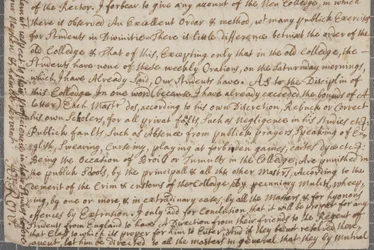 of the Rector. I forbear to give any account of the New Colledge, in which
there is observed An Excellent Order & method, wt many publick Exercises
for Students in Divinitie. There is little difference betwixt the order of the
old Colledge & That of this, Excepting only that in the old Colledge, the
Students have none of these weekly Orations, on the Saturday mornings
which, I have Already Said, Our Students have. As to the Disciplin of
this Colledge (in one word because I have already exceeded the bounds of A
Letter) Each Mastr does, according to his own Discretion, Rebuke or Correct
his own Scholers, for all privat faults Such as Negligence in his Studies &c.
Publick faults Such as Absence from publick prayers Speaking of
English, Swearing, Cursing, playing at forbidden games, cards dyce &c.
Being the Occasion of Broils or Tumults in the Colledge, Are punished in
the publick Schools, by the principall & all the other Masters, According to the
demerit of the Crim & customs of the Colledge by pecunniary Mulcts,
by one or more & in extraordinary cases, by all the Masters & for hynous
offences by Extrusion. I only add for Conclusion, that it will be proper for any
Student from England to have A Direction from their friends to the Regent of
that Class to which is proper for him to Enter. And if they be not resolved
let him be directed to all the masters in general that they by mutual